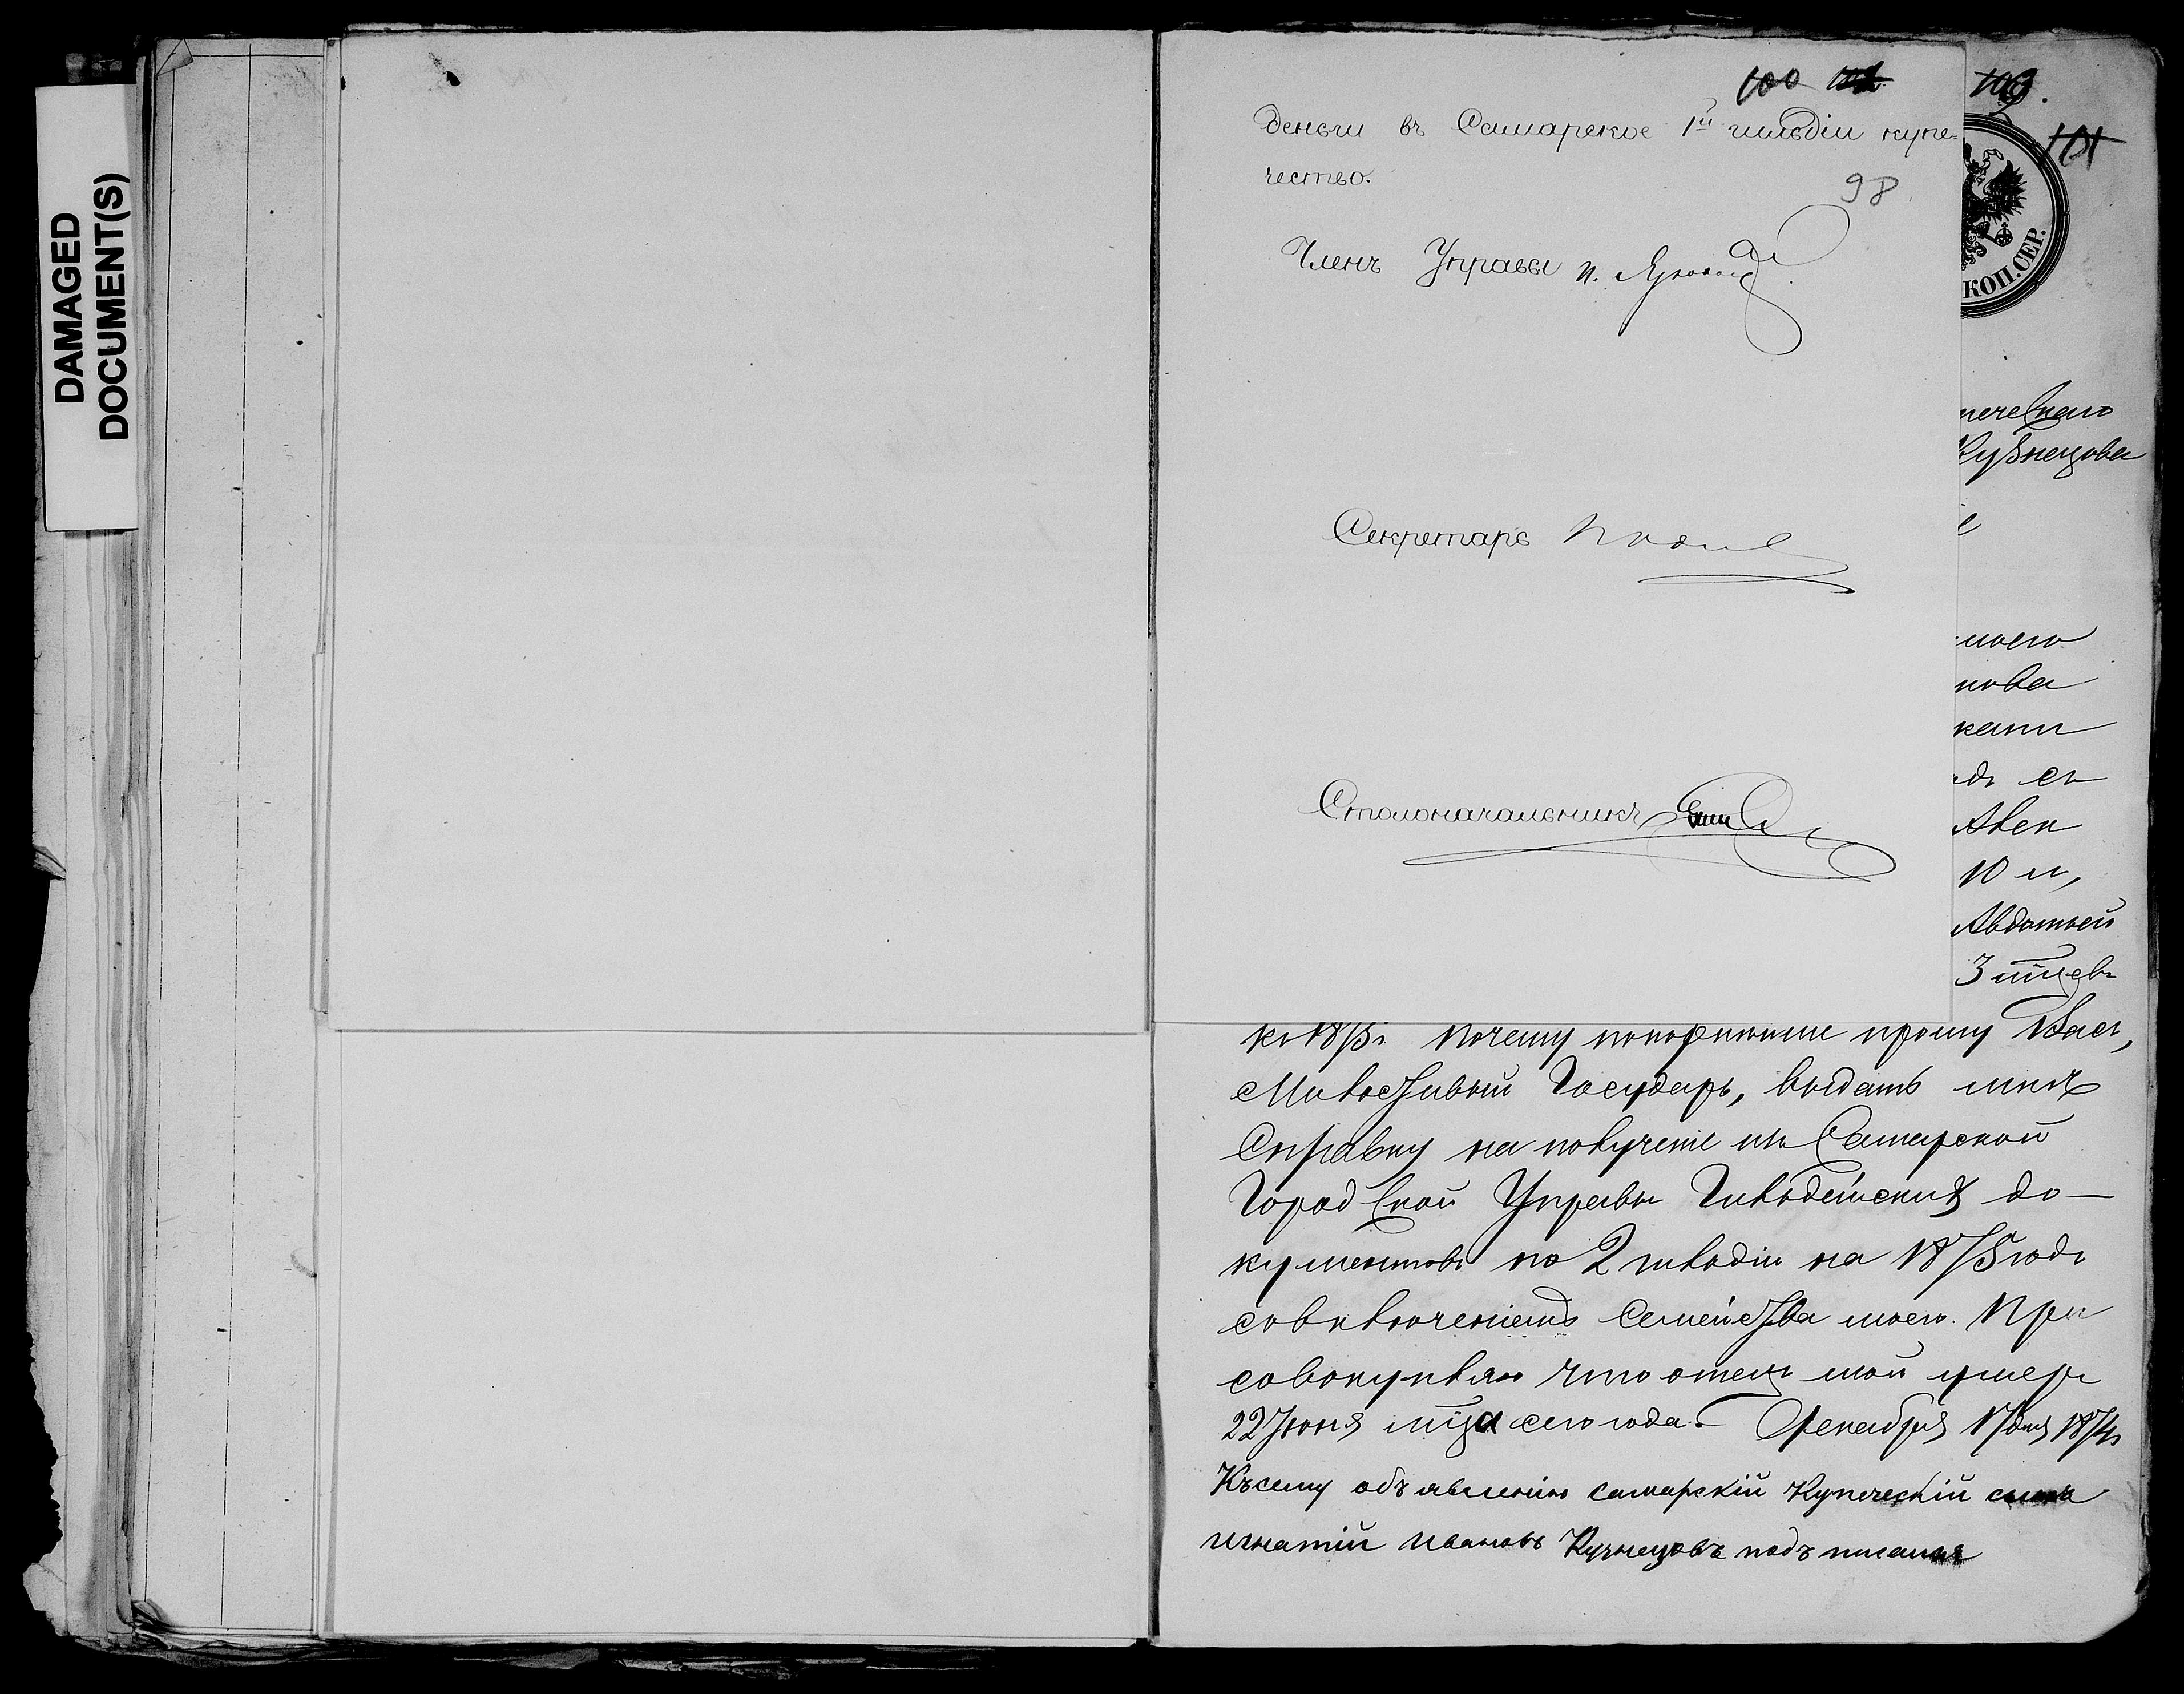 DAMAGED
DOCUMENT(S)
100
98
деньги въ Самарское 1й гильдіи купе-
чество.
Членъ Управы
Секретарь
Столоначальникъ
103.
101
КОП. СЕР.
печескаго
Кузнецова
моего
нова
съ
10 л,
Авдотьей
3 мцевъ
къ 1875г. почему покорнюйше прошу Васъ,
Милостивый Государь, выдать мнѣ
Справку на полученіе изъ Самарской
Городской Управы Гильдейскихъ до-
кументовъ по 2 гильдіи на 1875 годъ
совключеніемъ Семейства моего. При
совокупляю что отецъ мой умеръ
22 Іюня мца сего года. Декабря 17 дня 1874г
Къ сему объявленію самарскій Купеческій сынъ
игнатій ивановъ Кузнецовъ подъписался